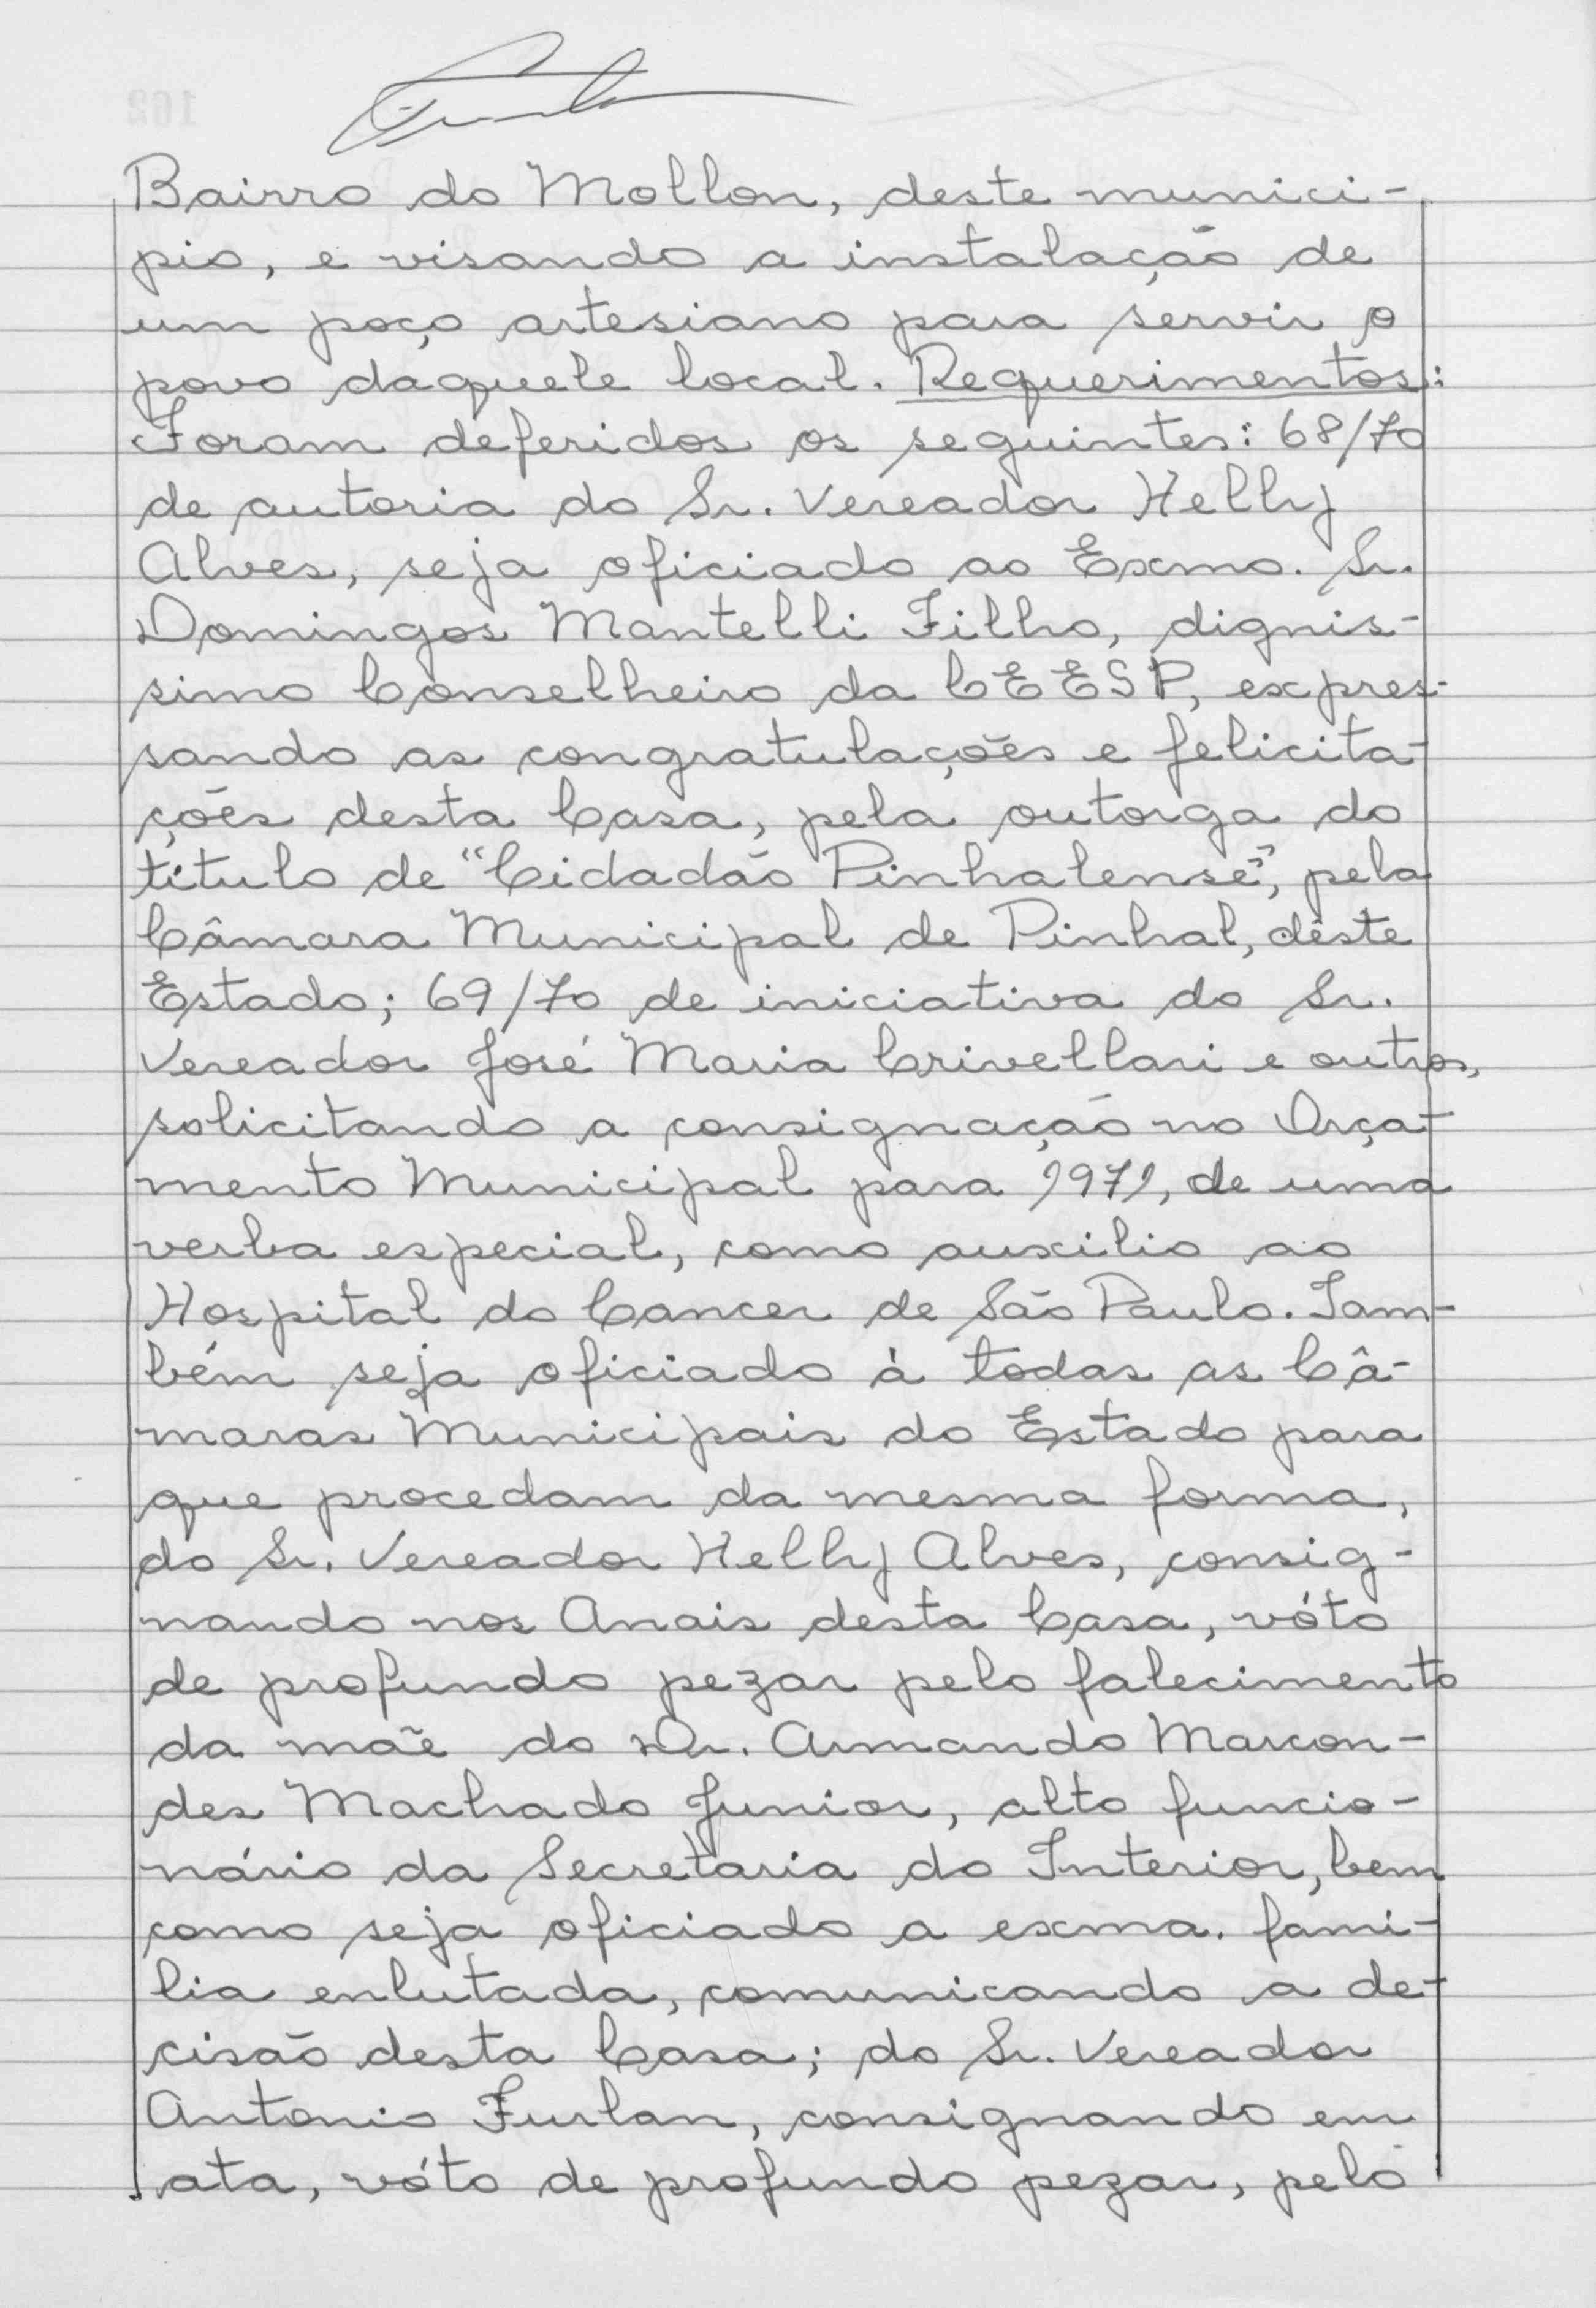 Bairro do Mollon, deste munici-
pio, e visando a instalação de
um poço artesiano para servir o
povo daquele local. Requerimentos:
Foram deferidos os seguintes: 68/70
de autoria do Sr. Vereador Hellnj
Alves, seja oficiado ao Exmo. Sr.
Domingos Mantelli Filho, dignis-
simo Conselheiro da CEESP, expres-
sando as congratulações e felicita-
ções desta Casa, pela outorga do
título de "Cidadão Pinhalense", pela
Câmara Municipal de Pinhal, dêste
Estado; 69/70 de iniciativa do Sr.
Vereador José Maria Crivellari e outros,
solicitando a consignação no Orça-
mento Municipal para 1971, de uma
verba especial, como auxilio ao
Hospital do Cancer de São Paulo. Tam-
bém seja oficiado à todas as Câ-
maras Municipais do Estado para
que procedam da mesma forma,
do Sr. Vereador Hellnj Alves, consig-
nando nos Anais desta Casa, vóto
de profundo pezar pelo falecimento
da mãe do Dr. Armando Marcon-
des Machado Junior, alto funcio-
nário da Secretaria do Interior, bem
como seja oficiado a exma. famí-
lia enlutada, comunicando a de-
cisão desta Casa; do Sr. Vereador
Antonio Furlan, consignando em
ata, vóto de profundo pezar, pelo